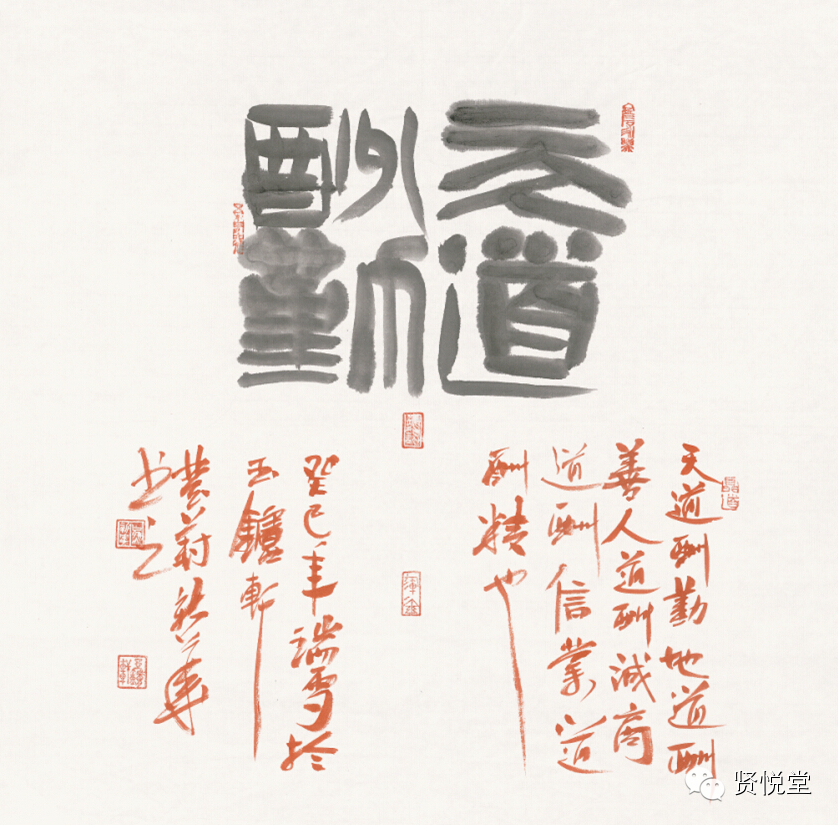 天道
酬勤
天道酬勤地道酬
善人道酬诚商
道酬信業道
酬精也
癸巳年瑞雪於
玉鑪軒
书之
贤悦堂